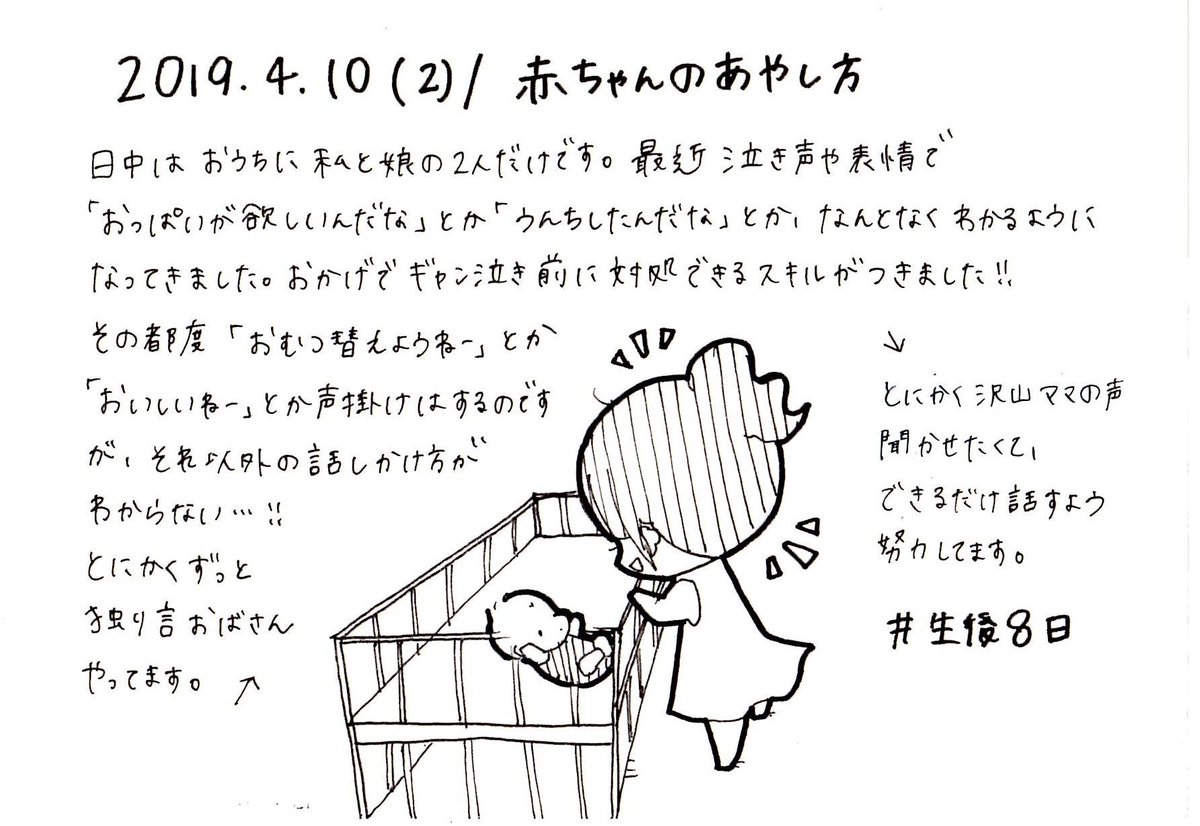 2019.4.10(2)/ 赤ちゃんのあやし方
日中は おうちに 私と娘の2人だけです。最近 泣き声や表情で
「おっぱいが欲しいんだな」とか「うんちしたんだな」とか、なんとなく わかるように
なってきました。おかげで ギャン泣き前に 対処できるスキルがつきました!!
その都度「おむつ替えようねー」とか
「おいしいねー」とか声掛けはするのです
が、それ以外の話しかけ方が
わからない…!!
とにかくずっと
独り言おばさん
やってます。↗
↘
とにかく沢山ママの声
聞かせたくて、
できるだけ話すよう
努力してます。
#生後8日